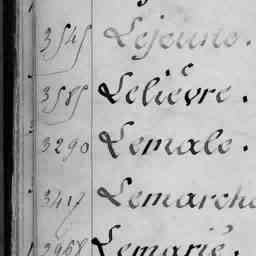 3545 Lejeune.
3585 Lelièvre.
3290 Lemale.
3417 Lemarche
2968 Lemarié.